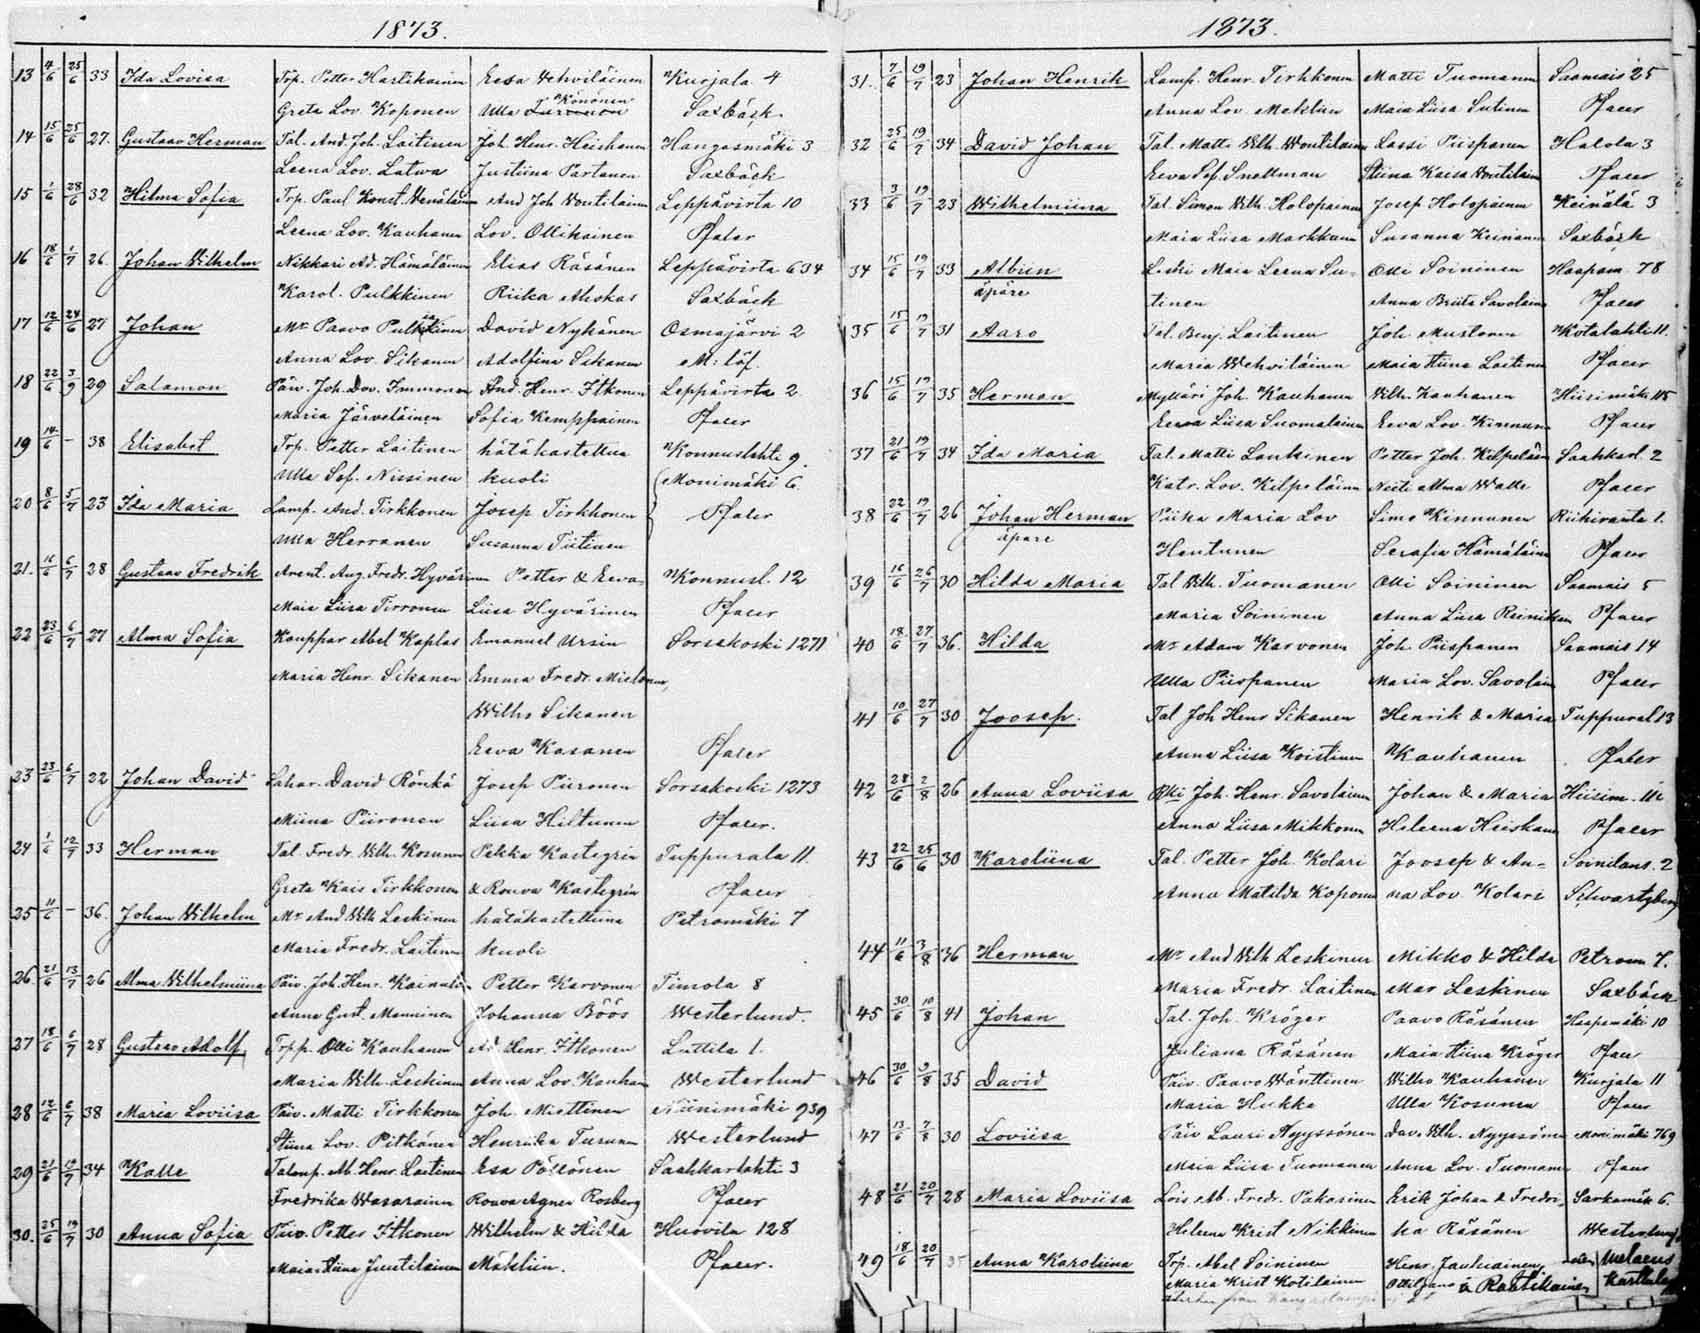 1873.
13 4/6 25/6 33 Ida Lovisa Trp. Petter Hartikainen Eeva Vehviläinen Kurjala 4
Greta Lov. Koponen Ulla Könönen Saxbäck
14 15/6 25/6 27. Gustaav Herman Tal. And. Joh. Laitinen Joh. Henr. Heiskanen Hangasmäki 3
Leena Lov. Latwa Justiina Partanen Saxbäck
15 1/6 28/6 32 Hilma Sofia Trp. Paul Konst. Venäläinen And Joh Voutilainen Leppävirta 10
Leena Lov. Kauhanen Lov. Ollikainen Pfaler
16 18/6 1/7 26. Johan Vilhelm Nikkari Ad. Hämäläinen Elias Räsänen Leppävirta 634
Karol. Pulkkinen Riika Ahokas Saxbäck
17 12/6 24/6 27 Johan Mr Paavo David Nykänen Osmajärvi 2
Anna Lov. Sikanen Adolfina Sikanen M. löf.
18 22/6 3/9 29 Salamon Päiv. Joh. Dav. Immonen And. Henr. Itkonen Leppävirta 2.
Maria Järveläinen Sofia Kemppainen Pfaler
19 14/6 - 38 Elisabet Trp. Petter Laitinen hätäkastettua Konnuslahti 9.
Ulla Sof. Nissinen kuoli Monimäki 6.
20 8/6 5/7 23 Ida Maria Lamp. And. Tirkkonen Josep Tirkkonen Pfaler
Ulla Herranen Susanna Tiitinen
21. 16/6 6/7 28 Gustaav Fredrik Arent. Aug. Fredr. Hyvärinen Petter & Eeva Konnusl. 12
Maia Liisa Tirronen Liisa Hyvärinen Pfaler
22 23/6 6/7 27 Alma Sofia Kauppar Abel Kaplas Emanuel Ursin Sorsakoski 1271
Maria Henr. Sikanen Emma Fredr. Miettinen,
Wilho Sikanen
Eeva Kasanen Pfaler
23 23/6 6/7 22 Johan David Sahar. David Rönkö Josep Piironen Sorsakoski 1273
Miina Piironen Liisa Hiltunen Pfaler.
24 1/6 12/7 33 Herman Tal. Fredr. Vilh. Kosunen Pekka Kastegrin Tuppurala 11.
Greta Kais Tirkkonen & Rouva Kastegrin Pfaler
25 11/6 - 36. Johan Vilhelm Mr And Vilh Leskinen hätäkastettuna Petromäki 7
Maria Fredr. Laitinen kuoli
26. 21/6 13/7 26 Alma Vilhelmiina Päiv. Joh. Henr. Kainulainen Petter Karvonen Timola 8
Anna Gust. Manninen Johanna Böös Westerlund.
27 18/6 6/7 28 Gustaav Adolf Trpp. Olli Kauhanen Ad. Henr. Itkonen Luttila 1.
Maria Vilh. Leskinen Anna Lov. Kauhanen Westerlund
28 12/6 6/7 38 Maria Loviisa Päiv. Matti Tirkkonen Joh. Miettinen Niinimäki 939
Stiina Lov. Pitkänen Henriika Turunen Westerlund
29 21/6 19/7 34 Kalle Talonp. Ab. Henr. Laitinen Esa Pöllönen Saahkarlahti 3
Fredrika Wasarainen Rouva Agnes Rosberg Pfaler
30. 25/6 19/7 30 Anna Sofia Päiv. Petter Itkonen Wilhelm & Hilda Huovila 128
Maia Stiina Juutilainen Mähliin. Pfaler.
1873.
31. 7/6 19/7 23 Johan Henrik Lamp. Henr. Tirkkonen Matti Tuomanen Saamais 25
Anna Lov. Meklin Maia Liisa Sutinen Pfaler
32 25/6 19/7 34 David Johan Tal. Matts Vilh. Voutilainen Lassi Piispanen Halola 3
Eeva Sof. Snellman Stiina Kaisa Voutilainen Pfaler
33 3/6 19/7 23 Wilhelmiina Tal. Simon Vilh. Holopainen Josep Holopainen Keinälä 3
Maia Liisa Markkanen Susanna Keinänen Saxbäck
34 15/6 19/7 33 Albiin Leski Maia Leena Su- Olli Soininen Haapam. 78
äpäre tinen Anna Briita Savolainen Pfaler
35 15/6 19/7 31 Aaro Tal. Benj. Laitinen Joh. Mustonen Kotalahti 11.
Maria Wehviläinen Maia Stiina Laitinen Pfaler
36 15/6 19/7 35 Herman Mylläri Joh. Kauhanen Vilh. Kauhanen Hiisimäki 115
Eeva Liisa Suomalainen Eeva Lov. Kinnunen Pfaler
37 21/6 19/7 34 Ida Maria Tal. Matti Lankinen Petter Joh. Kilpeläinen Saahkarl. 2
Katr. Lov. Kilpeläinen Neiti Alma Walle Pfaler
38 22/6 19/7 26 Johan Herman Piika Maria Lov Simo Kinnunen Riihiranta 1.
äpäre Hentunen Serafia Hämäläinen Pfaler
39 16/6 26/7 30 Hilda Maria Tal Vilh. Tuomanen Olli Soininen Saamais 5
Maria Soininen Anna Liisa Reinikainen Pfaler
40 18/6 27/7 36. Hilda Mr Adam Karvonen Joh. Piispanen Saamais 14
Ulla Piispanen Maria Lov. Savolainen Pfaler
41 10/6 27/7 30 Joosep. Tal Joh Henr Sikanen Henrik & Maria Tuppural 13
Anna Liisa Koistinen Kauhanen Pfaler
42 28/6 2/8 26 Anna Loviisa Rki Joh. Henr. Savolainen Johan & Maria Hiisim.
Anna Liisa Mikkonen Heleena Heiskanen Pfaler
43 22/6 25/6 30 Karoliina Tal. Petter Joh. Kolari Joosep & An- Soinilans. 2
Anna Matilda Koponen na Lov. Kolari Schwartzberg
44 11/6 3/8 36 Herman Mr And Vilh Leskinen Mikko & Hilda Petrom 7.
Maria Fredr. Laitinen Mar Leskinen Saxbäck
45 30/6 10/8 41 Johan Tal. Joh. Kröger Paavo Räsänen Haapamäki 10
Juliana Räsänen Maia Stiina Kröger Pfaler
46 30/6 9/8 35 David Päiv. Paavo Wänttinen Wilho Kauhanen Kurjala 11
Maria Hukka Ulla Kosunen Pfaler
47 13/6 7/8 30 Loviisa Päiv Lauri Nyyssönen Dav. Vilh. Nyyssönen Monimäki 769
Maia Liisa Tuomanen Anna Lov. Tuomanen Pfaler
48 21/6 20/7 28 Maria Loviisa Lois Ab. Fredr. Pakarinen Erik Johan & Fredri- Sarkamäk 6.
Heleena Krist Nikkinen ka Räsänen Westerlund
49 18/6 20/7 35 Anna Karoliina Trp. Abel Soininen Henr. Jauhiainen Melaeus
Maria Krist Kotilainen Raatikainen Karttula